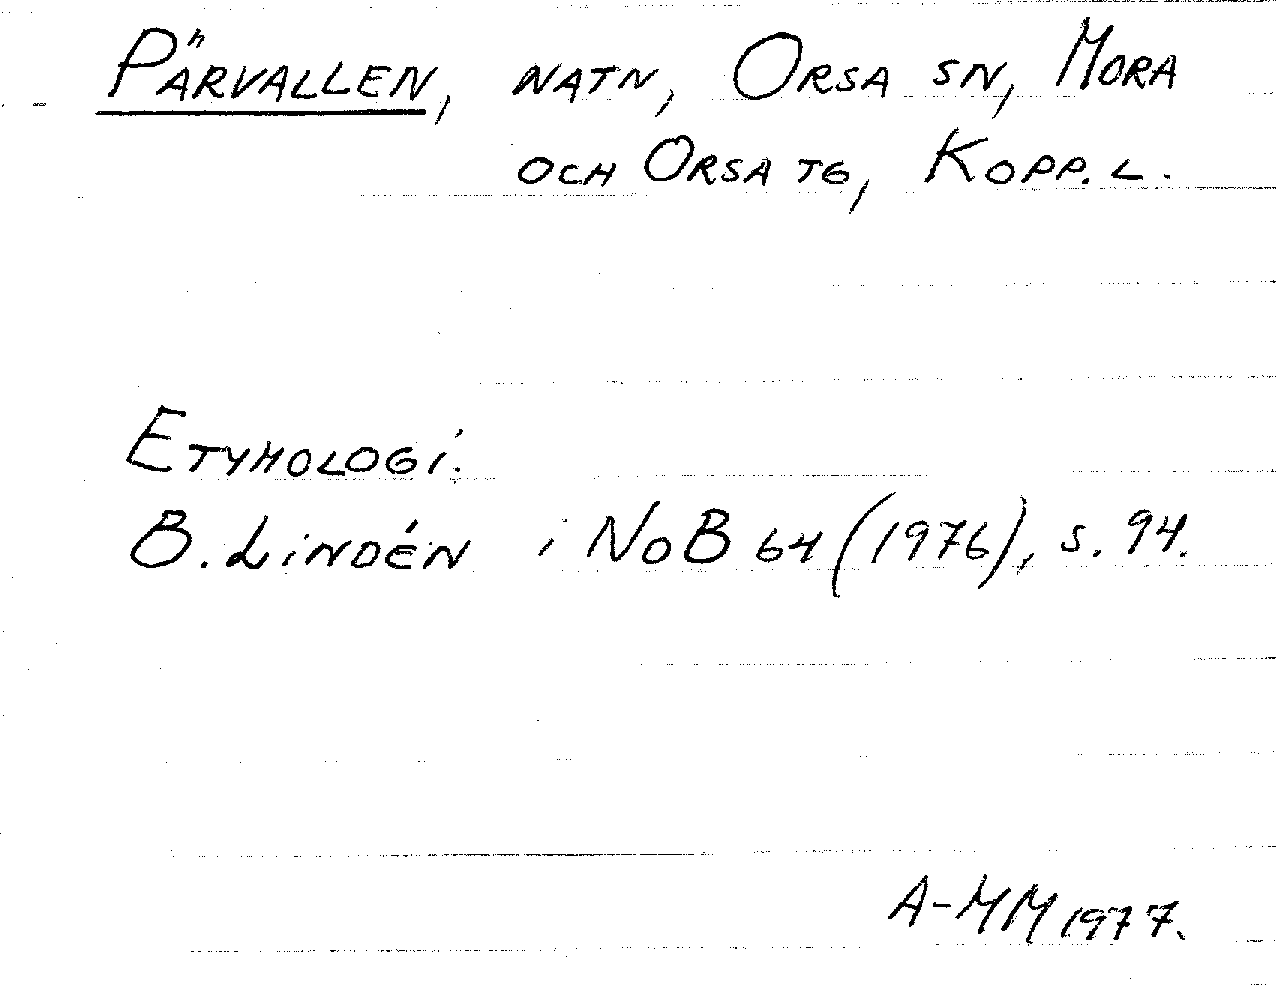 PÄRVALLEN, NATN, ORSA SN, MORA
OCH ORSA TG, KOPP. L.
ETYMOLOGI.
B. LINDÉN i NoB 64 (1976), s. 94.
A-MM 1977.